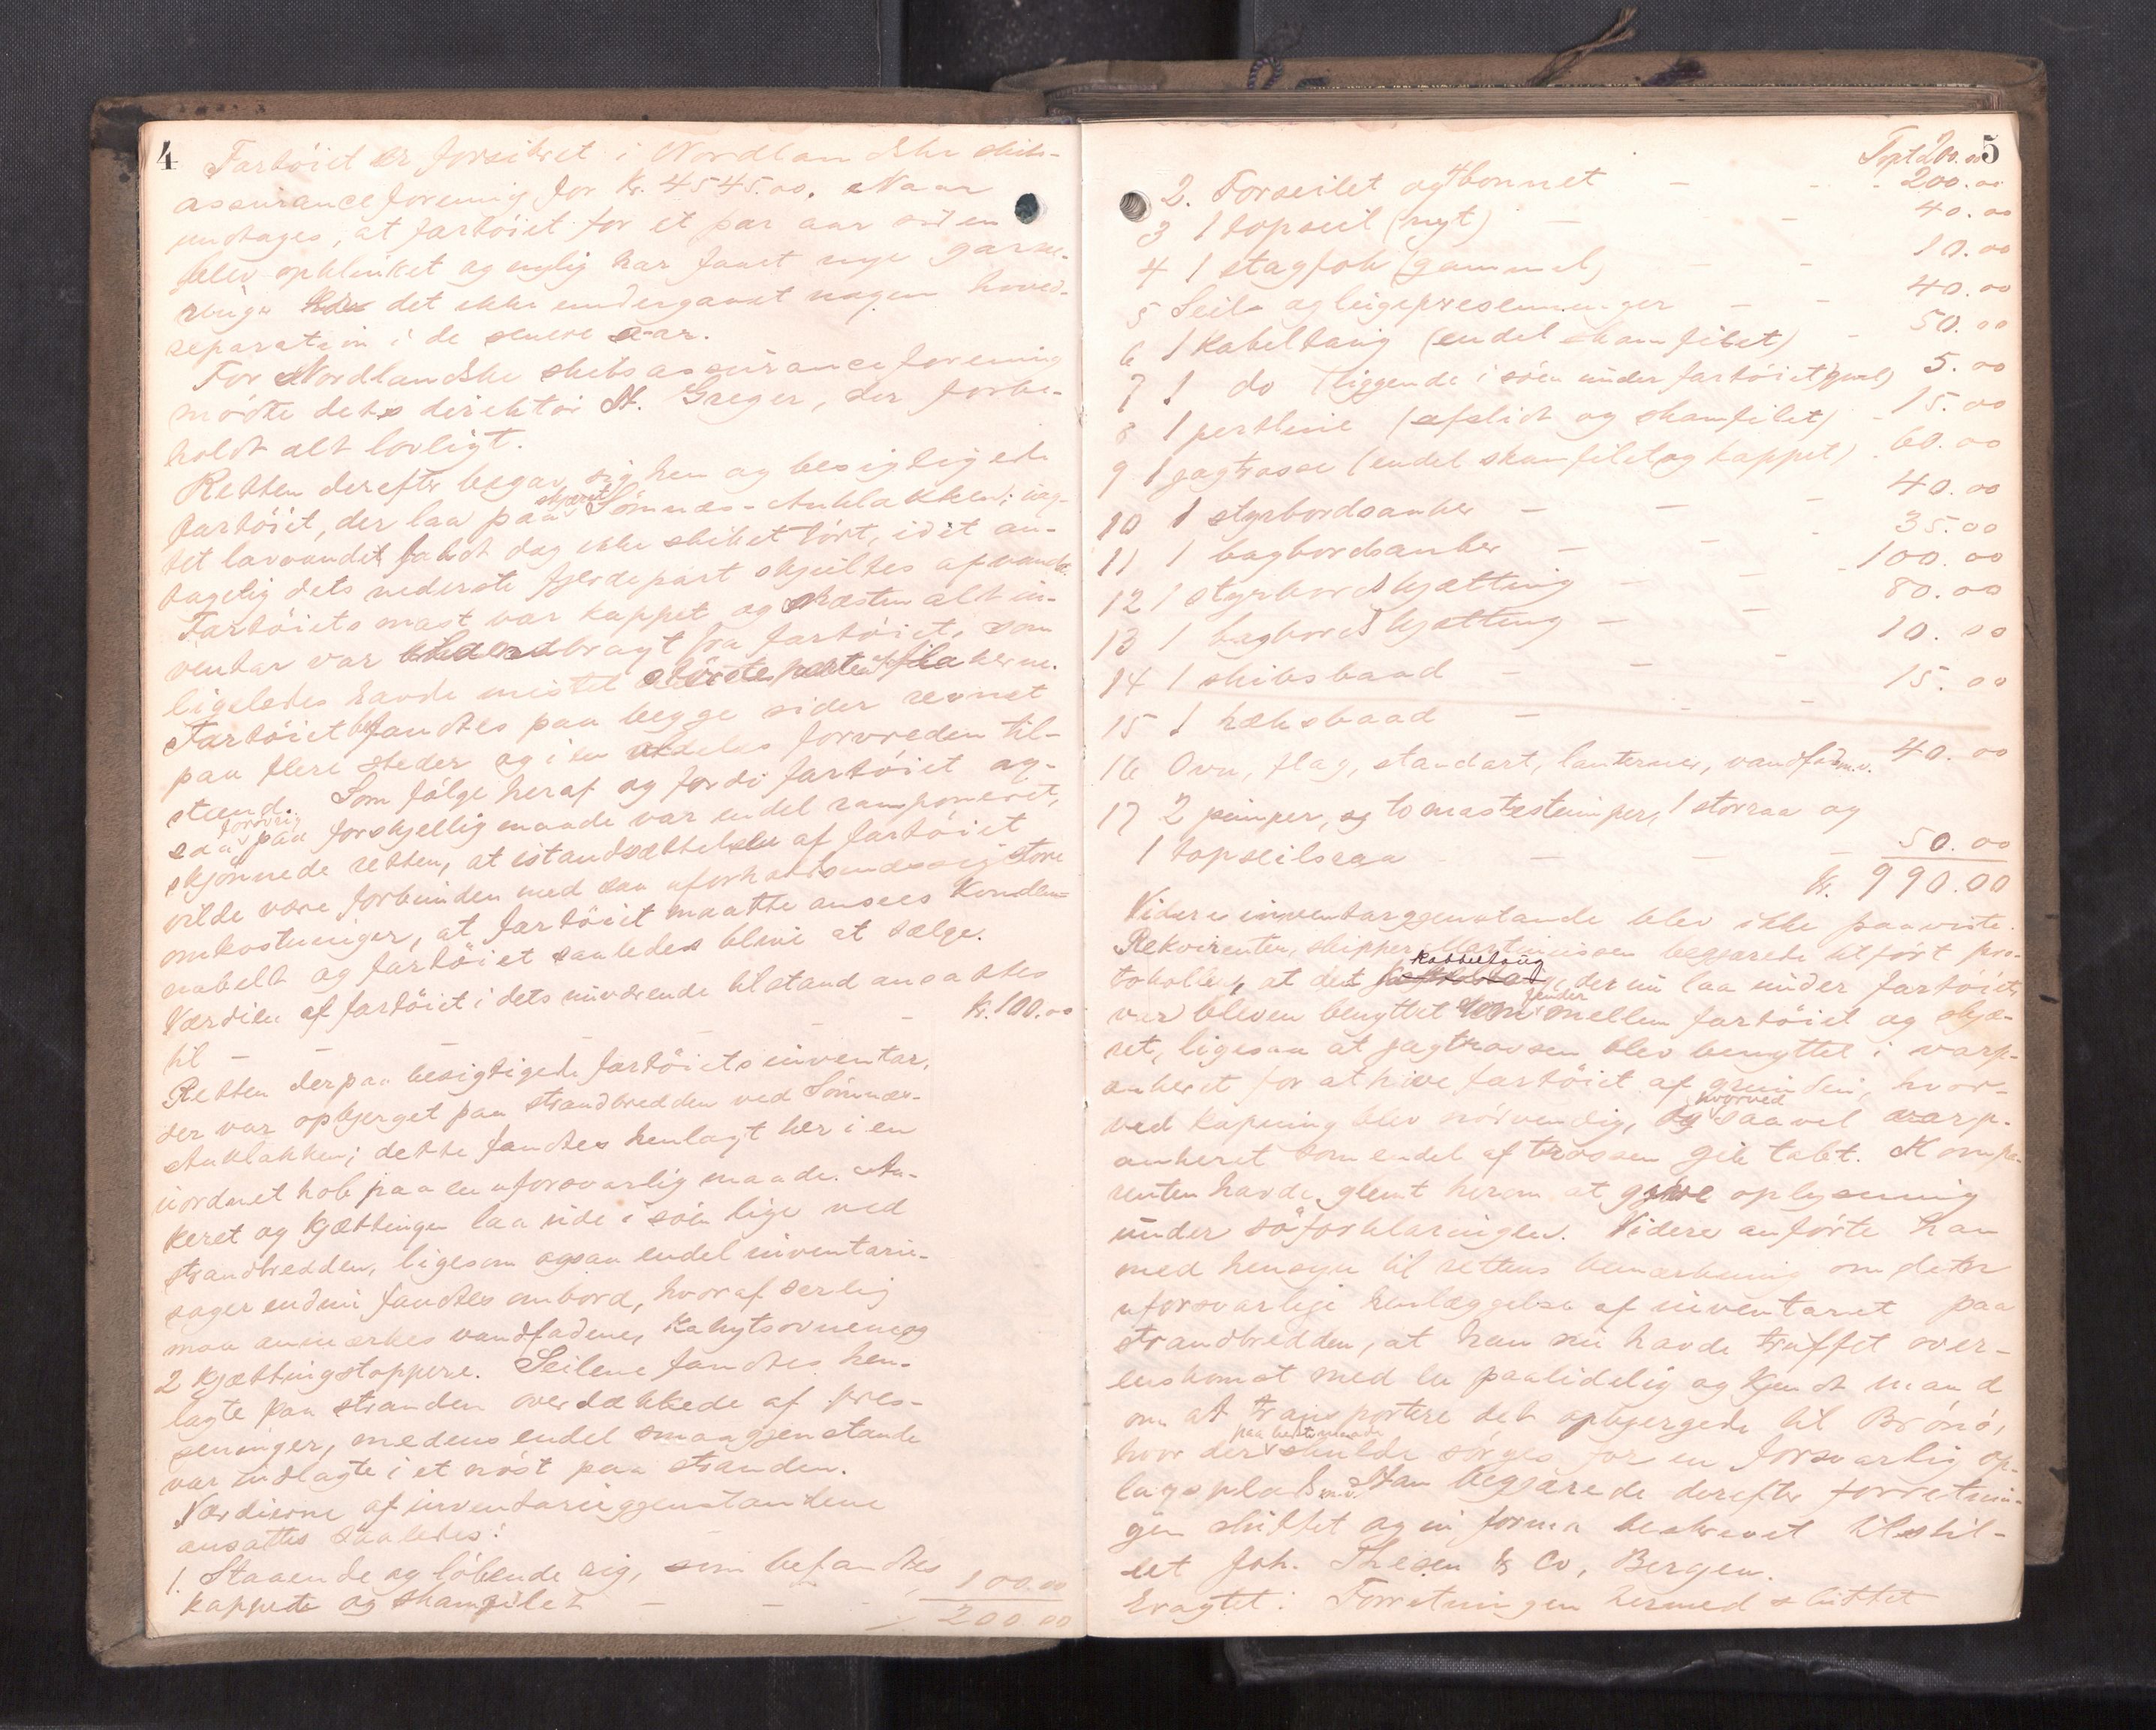 4
Fartöiet er forsikret i Nordlandske skibs-
assuranceforening for kr. 4545.00. Naar
undtages, at fartöiet for et par aar siden
blev opklinket og nylig har faaet nye garne-
ringer har det ikke undergaaet nogen hoved-
reparation i de senere aar.
For Nordlandske skibsassuranceforening
mödte dets direktör N. Greger, der forbe-
holdt alt lovligt.
Retten derefter begav sig hen og besigtigede
fartöiet, der laa paa skjæret Sömnes-Auklakken; uag-
tet lavvandet faldt dog ikke skibet tört, idet an-
tagelig dets nederste fjerdepart skjultes af vandet.
Fartöiets mast var kappet og næsten alt in-
ventar var bragt fra fartöiet, som
ligeledes havde mistet störsteparten af
Fartöiet befandtes paa begge sider revnet
paa flere steder og i en aldeles forvreden til-
stand. Som fölge heraf og fordi fartöiet og-
saa forövrig paa forskjellig maade var endel ramponeret,
skjönnede retten, at istandsættelsen af fartöiet
vilde være forbunden med saa uforholdsmæssig store
omkostninger, at fartöiet maatte ansees kondem-
nabelt og fartöiet saaledes blive at sælge.
Værdien af fartöiet i dets nuværende tilstand ansattes
til - - - - kr. 100.00
Retten derpaa besigtigede fartöiets inventar,
der var opbjerget paa strandbredden ved Sömnes-
Auklakken; dette fandtes henlagt her i en
uordnet hob paa en uforsvarlig maade. An-
keret og kjættingen laa ude i söen lige ved
strandbredden, ligesom ogsaa endel inventarie-
sager endnu fandtes ombord, hvoraf særlig
maa anmærkes vandfadene, kahytsovnen og
2 kjættingstoppere. Seilene fandtes hen-
lagte paa stranden overdækkede af pres-
seninger, medens endel smaagjenstande
var indlagte i et nöst paa stranden.
Værdierne af inventariegjenstandene
ansattes saaledes:
1. Staaende og löbende rig, som befandtes
kappet og skamfilet - - - 100.00
200.00
5
Tpt 200.00
2. Forseilet og 4 bonnet - - - 200.00
3 1 topseil (nyt) - - 40.00
4 1 stagfok (gammel) - - 10.00
5 Seil- og lugepresenninger - - 40.00
6 1 kabeltaug (endel skamfilet) - 50.00
7 1 do (liggende i söen under fartöiet) 5.00
8 1 pertline (afslidt og skamfilet) - 15.00
9 1 jagtrosse (endel skamfilet og kappet) - 60.00
10 1 styrbordsanker - - - 40.00
11 1 bagbordsanker - - - 35.00
12 1 styrbords kjætting - - - 100.00
13 1 bagbords kjætting - - 80.00
14 1 skibsbaad - - - 10.00
15 1 hæksbaad - - - 15.00
16 Ovn, flag, standart, lanterner, vandfad m.v. 40.00
17 2 pumper, og to mastestumper, 1 storraa og
1 topseilsraa - - - - 50.00
kr. 990.00
Videre inventargjenstande blev ikke paaviste.
Rekvirenten, skipper Martinussen begjærede tilfört pro-
tokollen, at det kabbeltaug, der nu laa under fartöiet,
var bleven benyttet som fender mellem fartöiet og skjæ-
ret, ligesaa at jagtrossen blev benyttet i varp-
ankeret for at hive fartöiet af grunden, hvor-
ved kapning blev nödvendig, og hvorved saavel varp-
ankeret som endel af trossen gik tabt. Kompa-
renten havde glemt herom at give oplysning
under söforklaringen. Videre anförte han
med hensyn til rettens bemærkning om den
uforsvarlige henlæggelse af inventaret paa
strandbredden, at han nu havde truffet over-
enskomst med en paalidelig og kjendt mand
om at transportere det opbjergede til Brönö,
hvor der paa bedste maade skulde sörges for en forsvarlig op-
lagsplads m.v. Han begjærede derefter forretnin-
gen sluttet og in forma beskrevet tilstil-
let Joh. Thesen & Co, Bergen.
Eragtet: Forretningen hermed sluttet